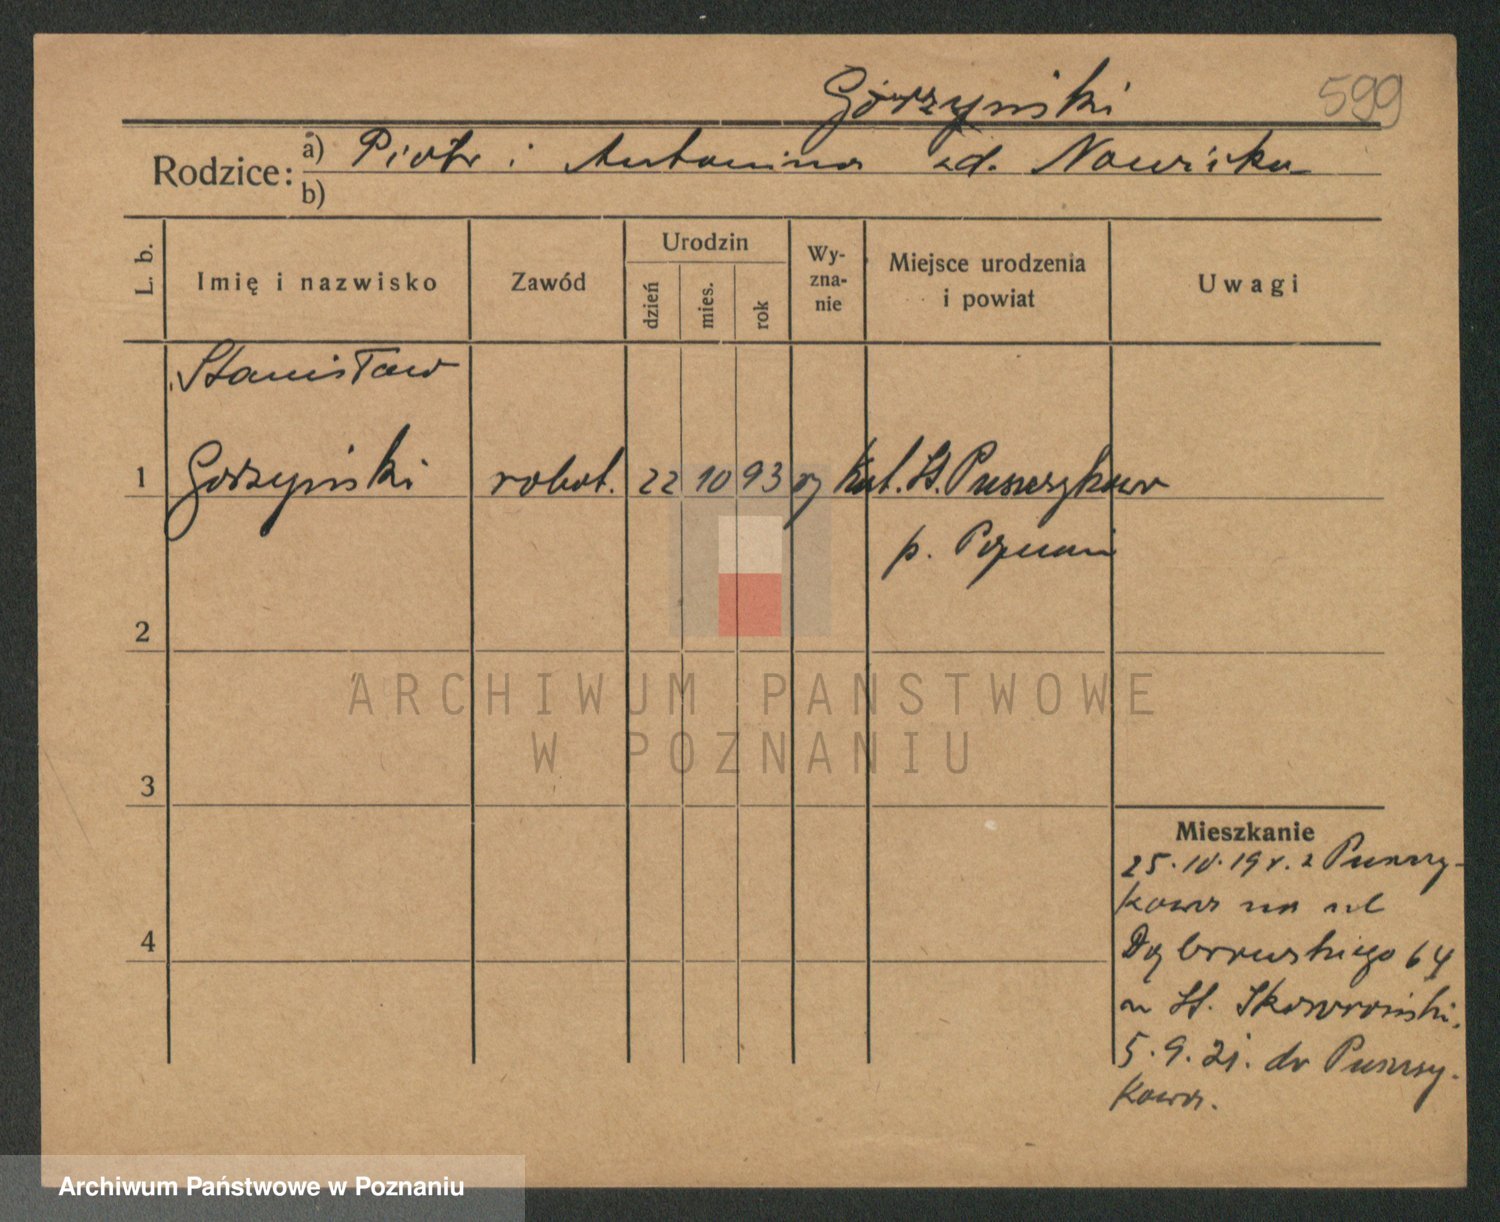 Górzyński
599
Rodzice: a) Piotr i Antonina zd. Nowicka
b)
L. b.
Imię i nazwisko
Zawód
Urodzin
dzień
mies.
rok
Wy-
zna-
nie
Miejsce urodzenia
i powiat
Uwagi
Stanisław
1 Górzyński robot. 22 10 93 rz Kat. St. Puszczykowo
p. Poznań
2
3
4
Mieszkanie
25.10.19 r. z Puszczy-
kowa na ul
Dąbrowskiego 64
u St. Skowroński.
5.9.21. do Puszczy-
kowa.
ARCHIWUM PAŃSTWOWE
W POZNANIU
Archiwum Państwowe w Poznaniu